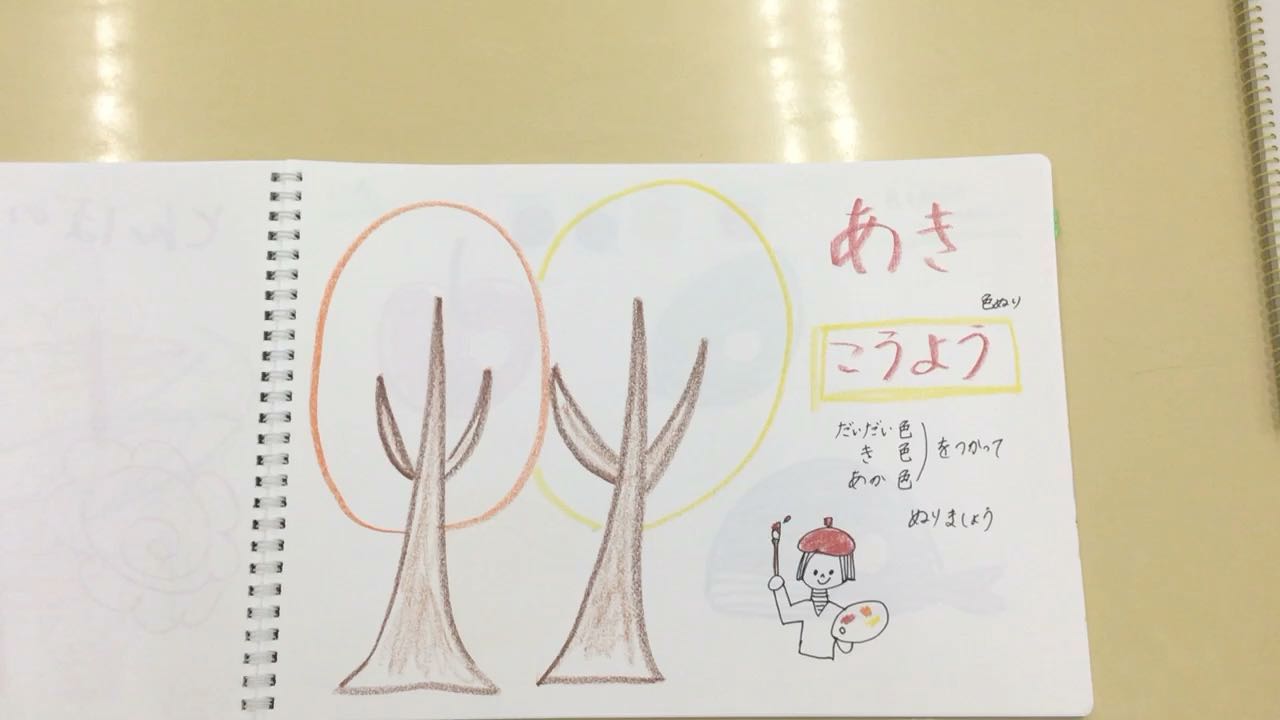 あき
色ぬり
こうよう
だいだい色
き色
あか色
をつかって
ぬりましょう